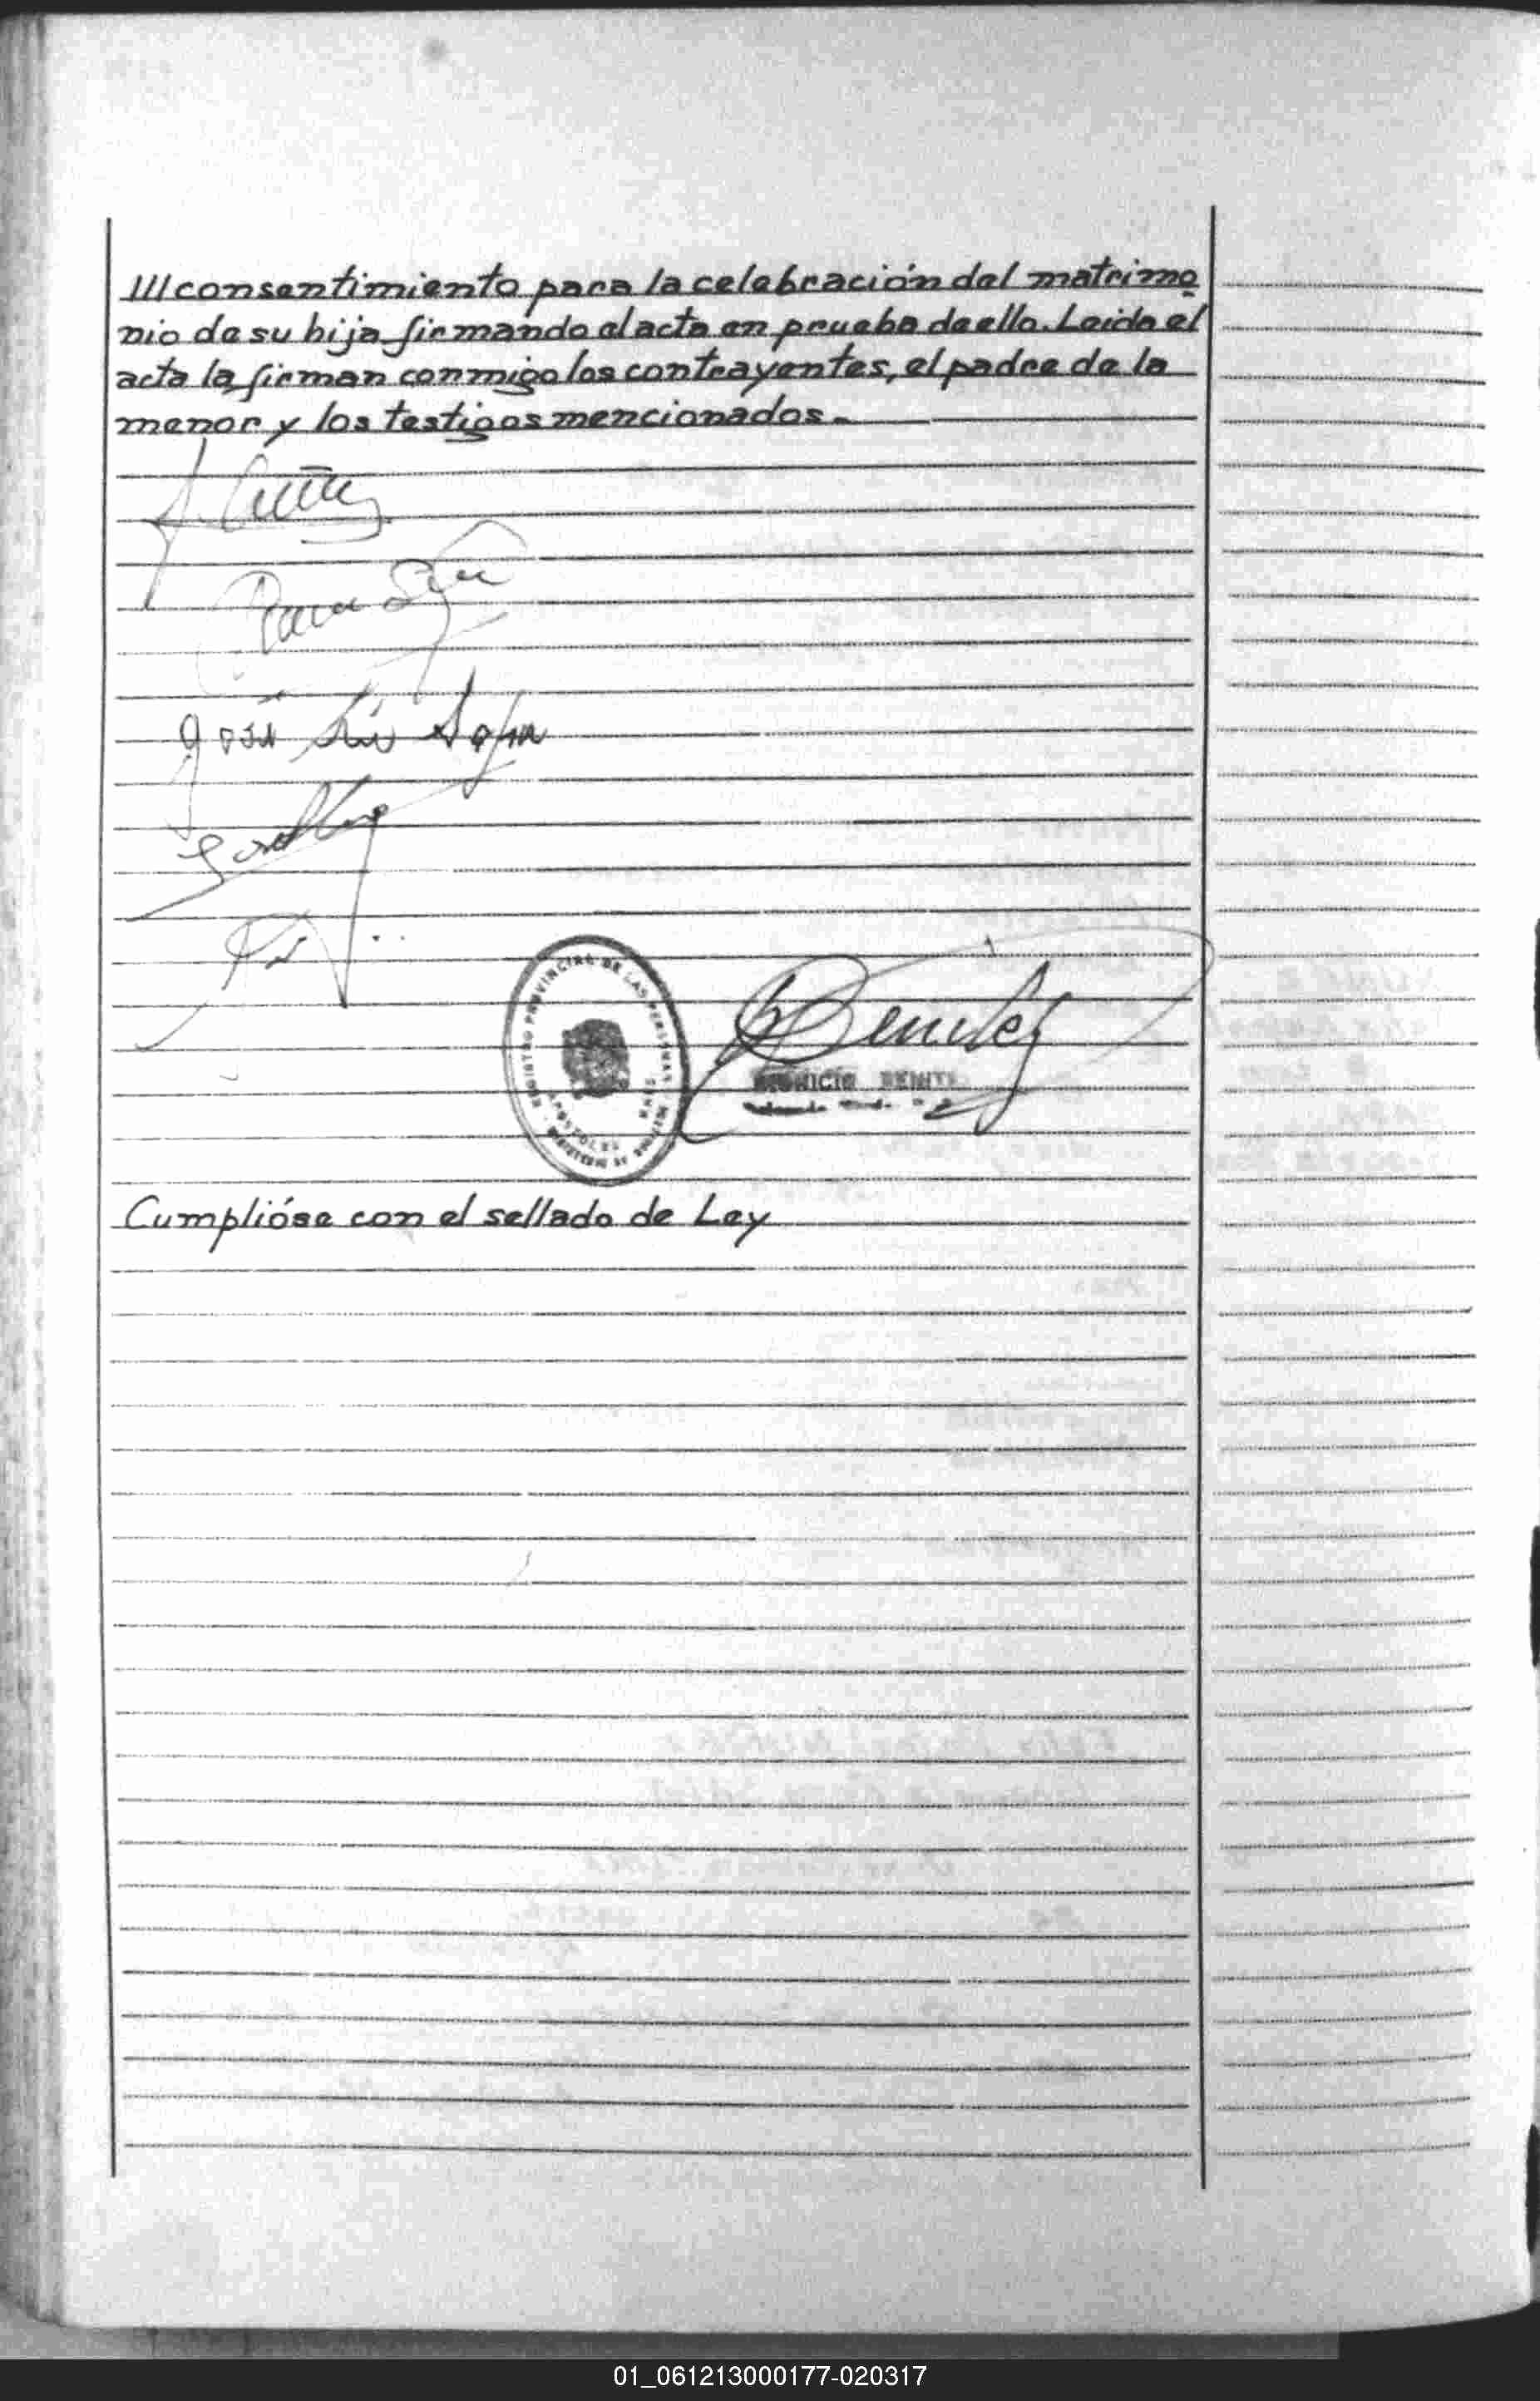 ///consentimiento para la celebración del matrimo
nio de su hija firmando el acta en prueba de ello. Leida el
acta la firman conmigo los contrayentes, el padre de la
menor y los testigos mencionados.-
José
REGISTRO PROVINCIAL DE LAS PERSONAS
APOSTOLES
Benitez
BENITE
Cumplióse con el sellado de Ley
01_061213000177-020317